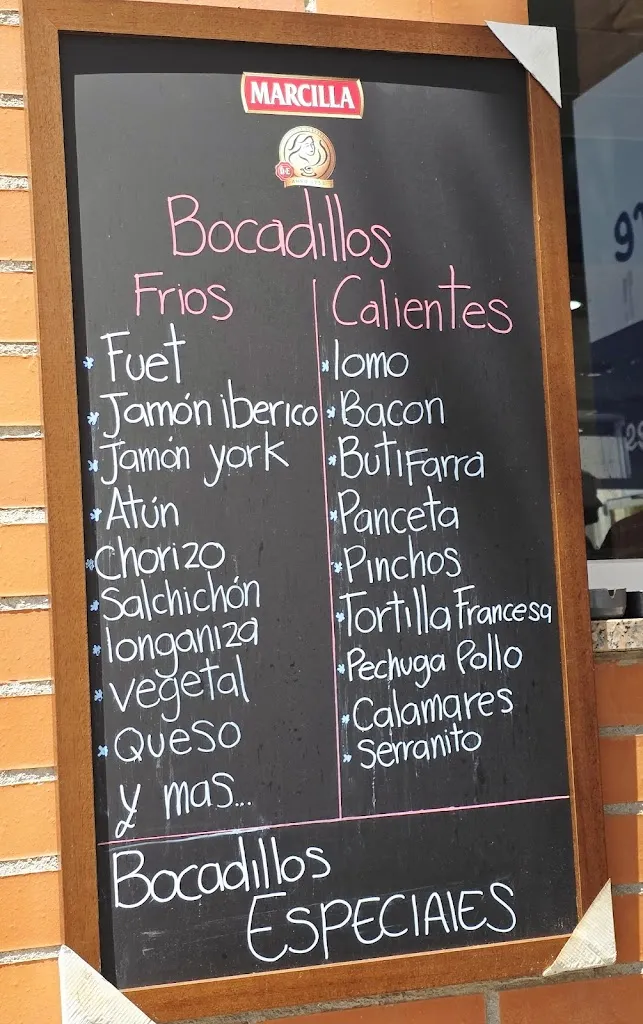 MARCILLA
Bocadillos
Frios
* Fuet
* Jamón iberico
* Jamón york
* Atún
* Chorizo
* Salchichón
* longaniza
* vegetal
* Queso
y mas...
Calientes
* lomo
* Bacon
* Butifarra
* Panceta
* Pinchos
* Tortilla Francesa
* Pechuga Pollo
* Calamares
* Serranito
Bocadillos
ESPECIAlES